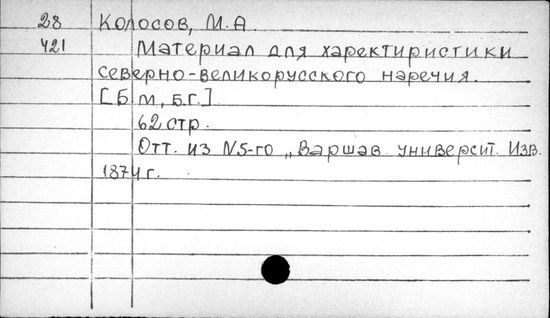 28 Колосов, М.А
421 Материал для харектиристики
северно-великорусского наречия.
[Б м, б.г.]
62 стр.
Отт. из N5-го „Варшав. университ. Изв.
1874 г.